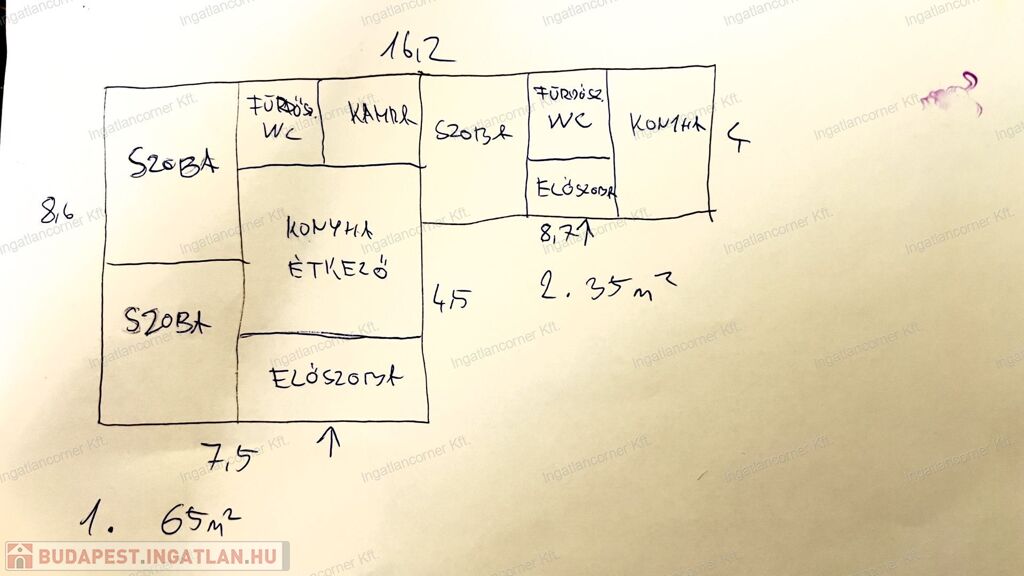 16,2
FÜRDŐSZ.
WC
KAMRA
SZOBA
FÜRDŐSZ.
WC
KONYHA
4
SZOBA
ELŐSZOBA
8,6
KONYHA
ÉTKEZŐ
8,7
2. 35m²
4,5
SZOBA
ELŐSZOBA
7,5
1. 65m²
BUDAPEST.INGATLAN.HU
Ingatlancorner Kft.